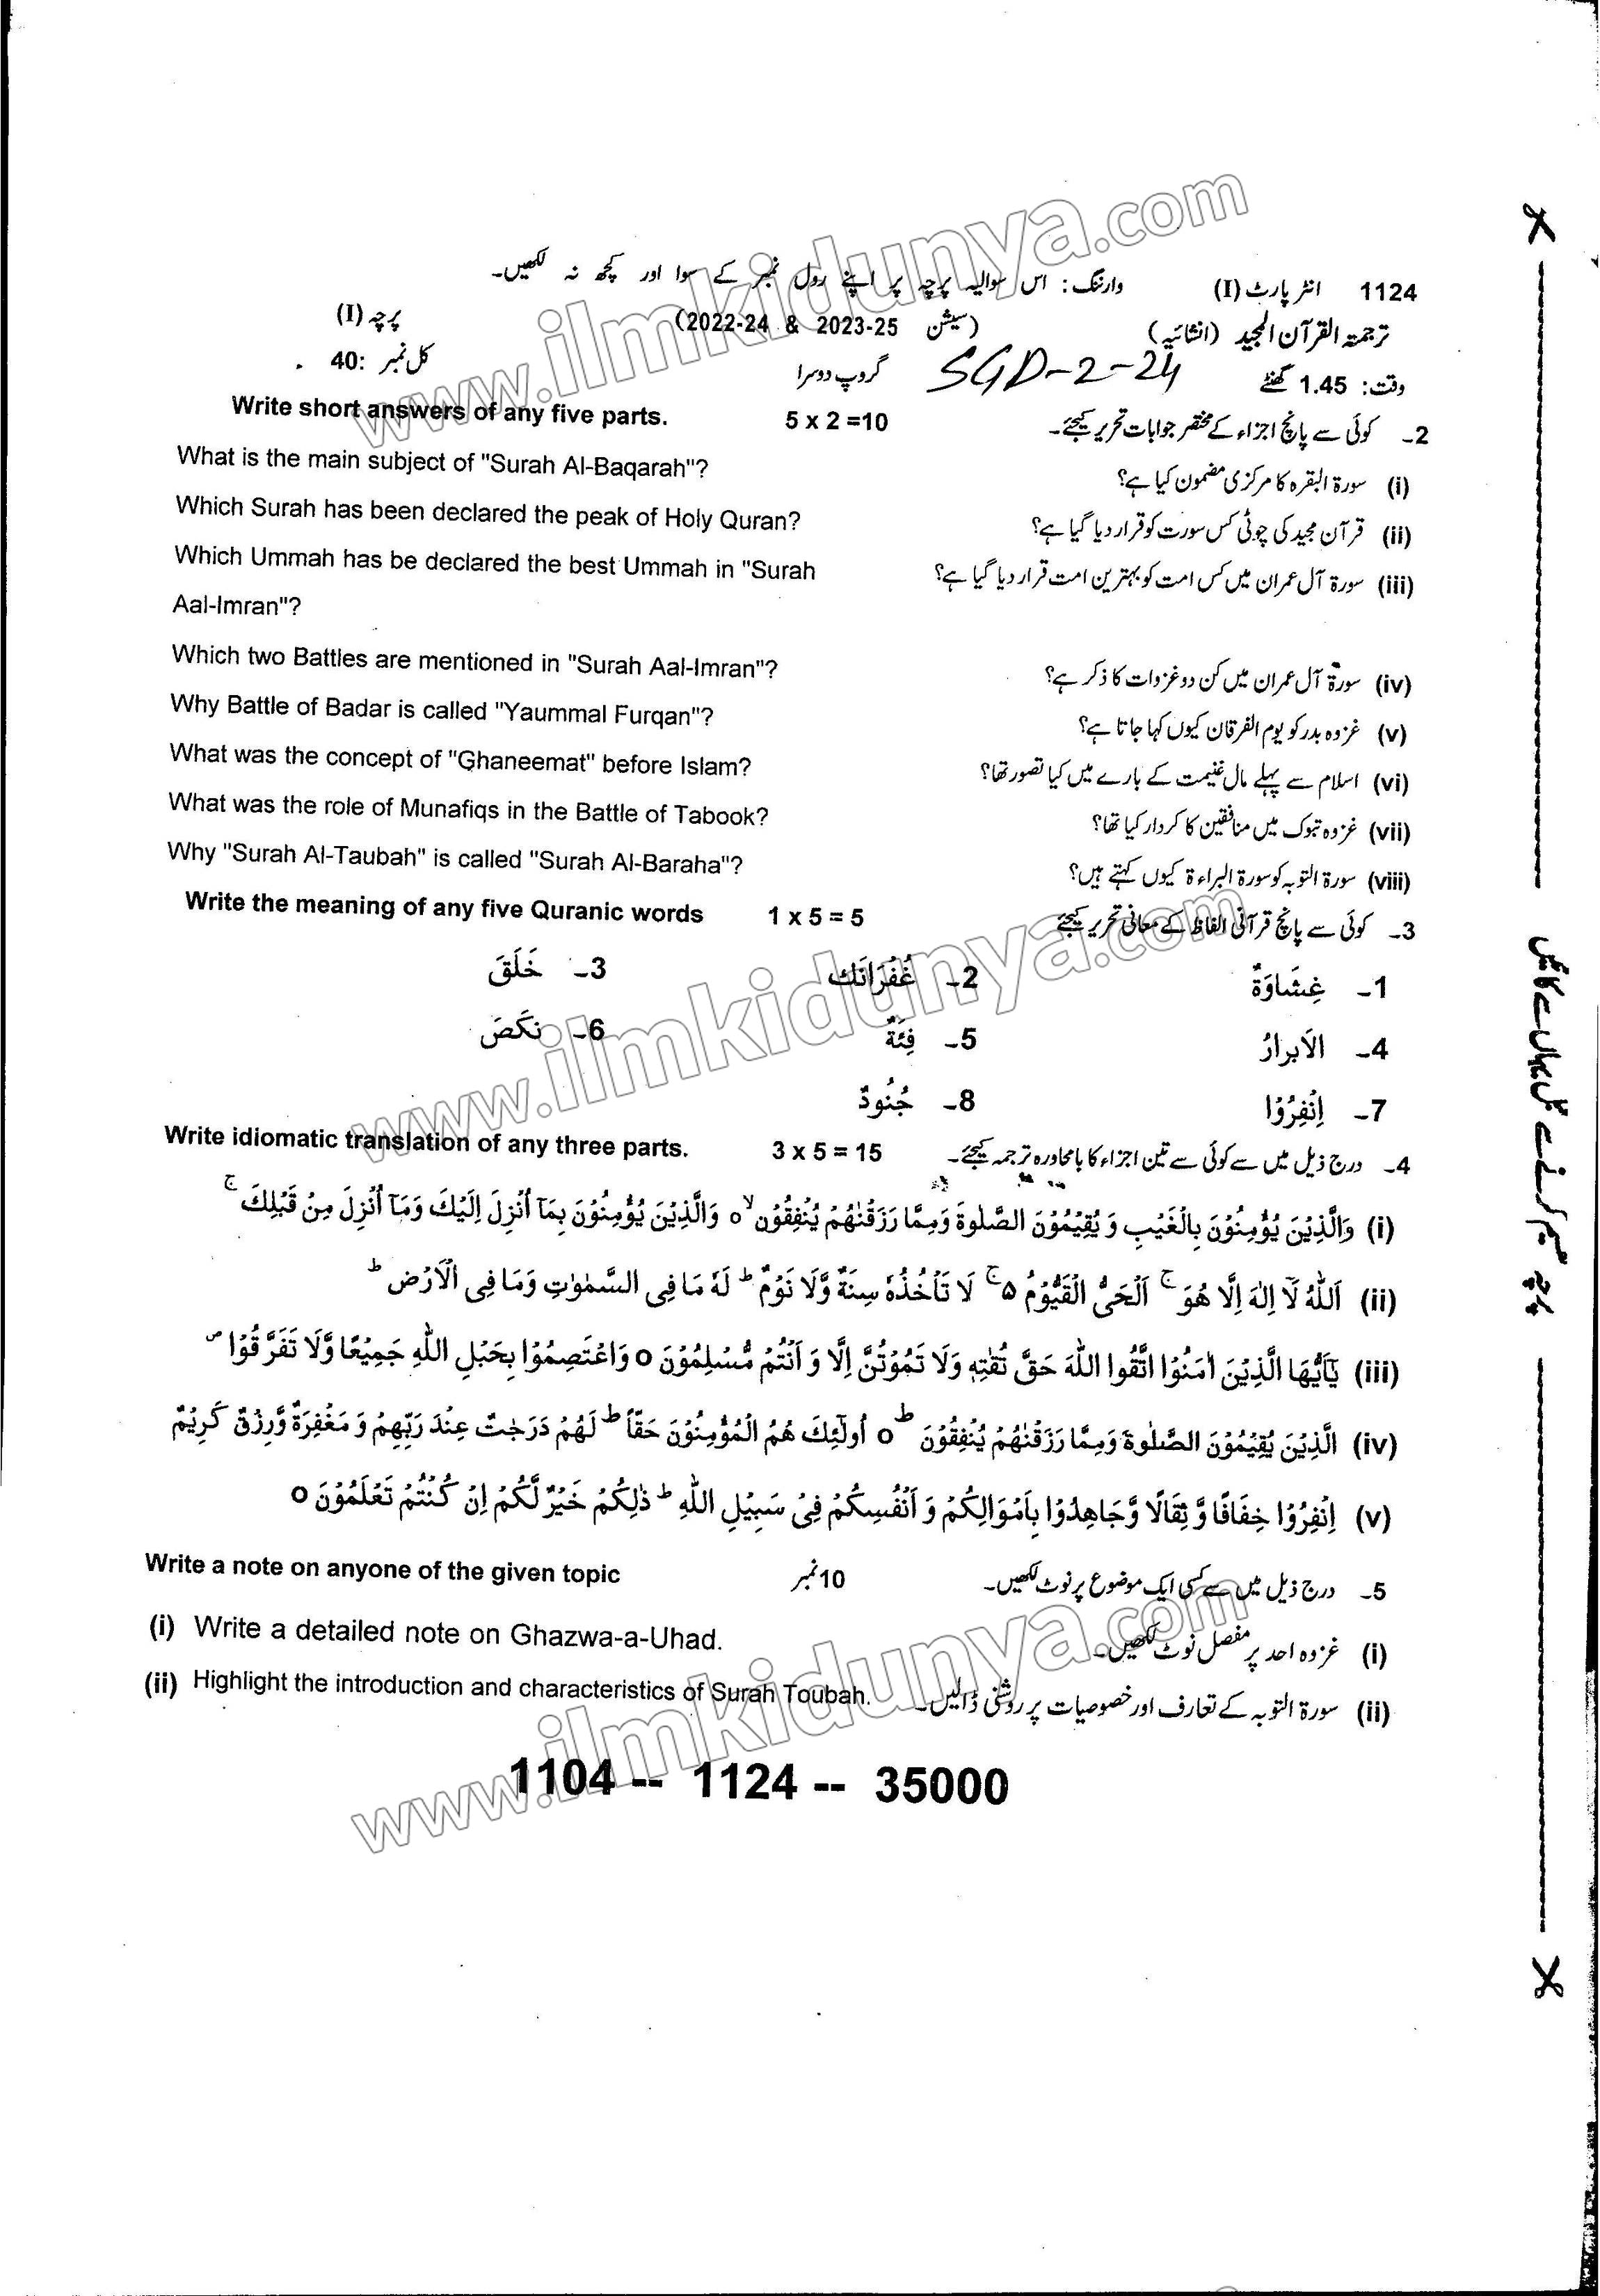 1124 انٹر پارٹ (I) وارننگ: اس سوالیہ پرچہ پر اپنے رول نمبر کے سوا اور کچھ نہ لکھیں۔
ترجمۃ القرآن المجید (انشائیہ) (سیشن 2023-25 & 2022-24) پرچہ (I)
وقت: 1.45 گھنٹے SGD-2-24 گروپ دوسرا کل نمبر: 40
Write short answers of any five parts. 5 x 2 =10 2۔ کوئی سے پانچ اجزاء کے مختصر جوابات تحریر کیجئے۔
What is the main subject of "Surah Al-Baqarah"? (i) سورۃ البقرہ کا مرکزی مضمون کیا ہے؟
Which Surah has been declared the peak of Holy Quran? (ii) قرآن مجید کی چوٹی کس سورت کو قرار دیا گیا ہے؟
Which Ummah has be declared the best Ummah in "Surah (iii) سورۃ آل عمران میں کس امت کو بہترین امت قرار دیا گیا ہے؟
Aal-Imran"?
Which two Battles are mentioned in "Surah Aal-Imran"? (iv) سورۃ آل عمران میں کن دو غزوات کا ذکر ہے؟
Why Battle of Badar is called "Yaummal Furqan"? (v) غزوہ بدر کو یوم الفرقان کیوں کہا جاتا ہے؟
What was the concept of "Ghaneemat" before Islam? (vi) اسلام سے پہلے مال غنیمت کے بارے میں کیا تصور تھا؟
What was the role of Munafiqs in the Battle of Tabook? (vii) غزوہ تبوک میں منافقین کا کردار کیا تھا؟
Why "Surah Al-Taubah" is called "Surah Al-Baraha"? (viii) سورۃ التوبہ کو سورۃ البراءۃ کیوں کہتے ہیں؟
Write the meaning of any five Quranic words 1 x 5 = 5 3۔ کوئی سے پانچ قرآنی الفاظ کے معانی تحریر کیجئے
1۔ غِشَاوَةٌ 2۔ غُفْرَانَك 3۔ خَلَقَ
4۔ الاَبرارُ 5۔ فِئَةٌ 6۔ نکَصَ
7۔ اِنْفِرُوْا 8۔ جُنُودٌ
Write idiomatic translation of any three parts. 3 x 5 = 15 4۔ درج ذیل میں سے کوئی سے تین اجزاء کا بامحاورہ ترجمہ کیجئے۔
(i) وَالَّذِیْنَ یُؤْمِنُوْنَ بِالْغَیْبِ وَ یُقِیْمُوْنَ الصَّلٰوةَ وَمِمَّا رَزَقْنٰهُمْ یُنْفِقُوْنَ ۙ o وَالَّذِیْنَ یُؤْمِنُوْنَ بِمَآ اُنْزِلَ اِلَیْكَ وَمَآ اُنْزِلَ مِنْ قَبْلِكَ ۚ
(ii) اَللّٰهُ لَآ اِلٰهَ اِلَّا هُوَ ۚ اَلْحَیُّ الْقَیُّوْمُ ۵ ۚ لَا تَاْخُذُهٗ سِنَةٌ وَّلَا نَوْمٌ ؕ لَهٗ مَا فِی السَّمٰوٰتِ وَمَا فِی الْاَرْضِ ؕ
(iii) یٰٓاَیُّهَا الَّذِیْنَ اٰمَنُوْا اتَّقُوا اللّٰهَ حَقَّ تُقٰتِهٖ وَلَا تَمُوْتُنَّ اِلَّا وَ اَنْتُمْ مُّسْلِمُوْنَ o وَاعْتَصِمُوْا بِحَبْلِ اللّٰهِ جَمِیْعًا وَّلَا تَفَرَّقُوْا ۪
(iv) الَّذِیْنَ یُقِیْمُوْنَ الصَّلٰوةَ وَمِمَّا رَزَقْنٰهُمْ یُنْفِقُوْنَ ؕ o اُولٰٓئِكَ هُمُ الْمُؤْمِنُوْنَ حَقًّا ؕ لَهُمْ دَرَجٰتٌ عِنْدَ رَبِّهِمْ وَ مَغْفِرَةٌ وَّرِزْقٌ کَرِیْمٌ
(v) اِنْفِرُوْا خِفَافًا وَّ ثِقَالًا وَّجَاهِدُوْا بِاَمْوَالِكُمْ وَ اَنْفُسِكُمْ فِیْ سَبِیْلِ اللّٰهِ ؕ ذٰلِكُمْ خَیْرٌ لَّكُمْ اِنْ كُنْتُمْ تَعْلَمُوْنَ o
Write a note on anyone of the given topic 10 نمبر 5۔ درج ذیل میں سے کسی ایک موضوع پر نوٹ لکھیں۔
(i) Write a detailed note on Ghazwa-a-Uhad. (i) غزوہ احد پر مفصل نوٹ لکھیں۔
(ii) Highlight the introduction and characteristics of Surah Toubah. (ii) سورۃ التوبہ کے تعارف اور خصوصیات پر روشنی ڈالیں۔
1104 -- 1124 -- 35000
www.ilmkidunya.com
www.ilmkidunya.com
www.ilmkidunya.com